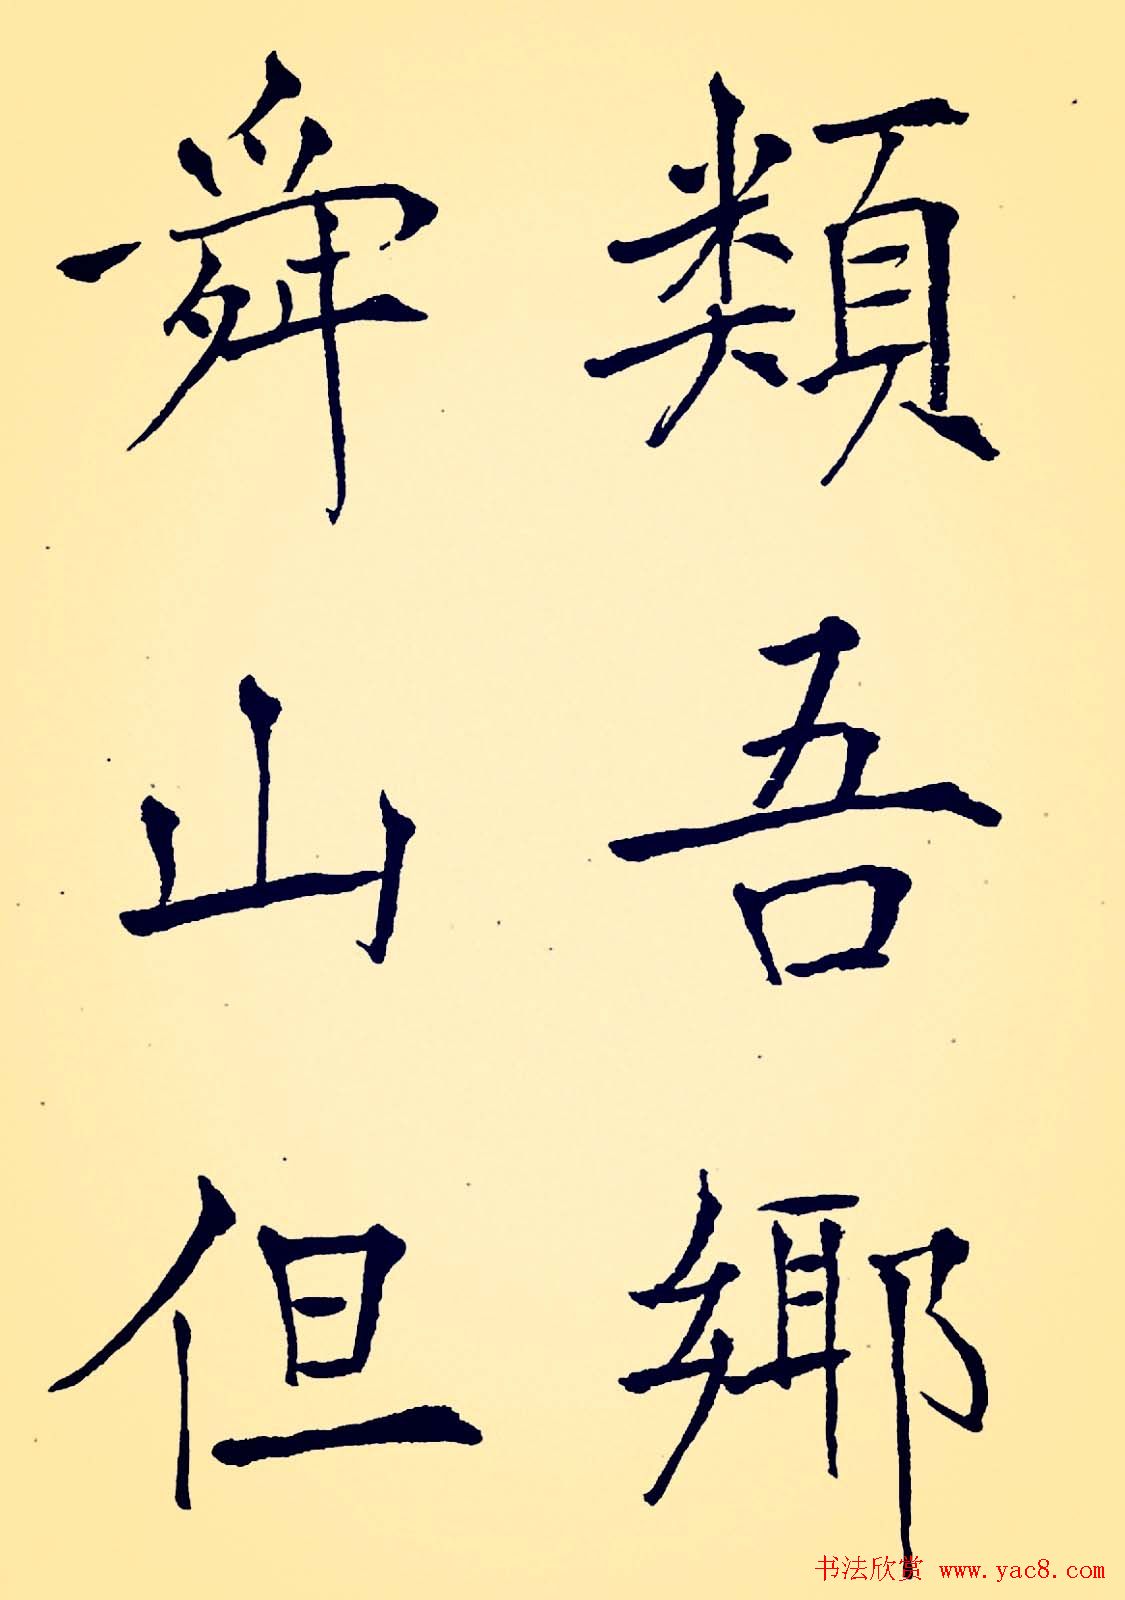 類吾鄉
舜山但
书法欣赏 www.yac8.com